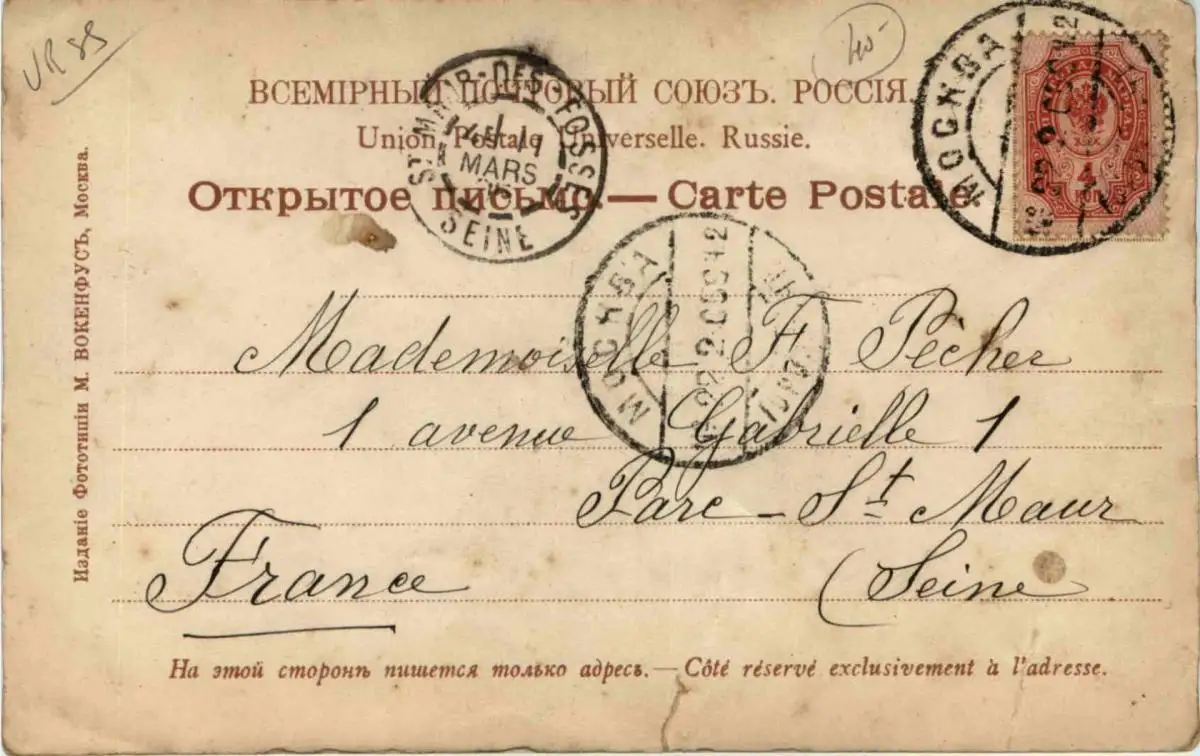 UR 89
40-
ВСЕМІРНЫЙ ПОЧТОВЫЙ СОЮЗЪ. РОССІЯ.
Union Postale Universelle. Russie.
Открытое письмо. — Carte Postale
ST MAUR-DES-FOSSES
MARS
SEINE
МОСКВА
4
МОСКВА
Mademoiselle F. Pècher
1 avenue Gabrielle 1
Parc - St Maur
France (Seine
На этой сторонѣ пишется только адресъ. — Côté réservé exclusivement à l'adresse.
Изданіе Фототипіи М. ВОКЕНФУСЪ, Москва.